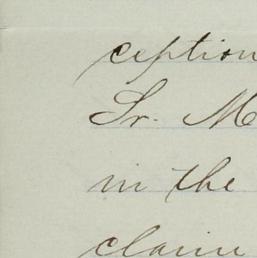 ception
Sr. M
in the
claim